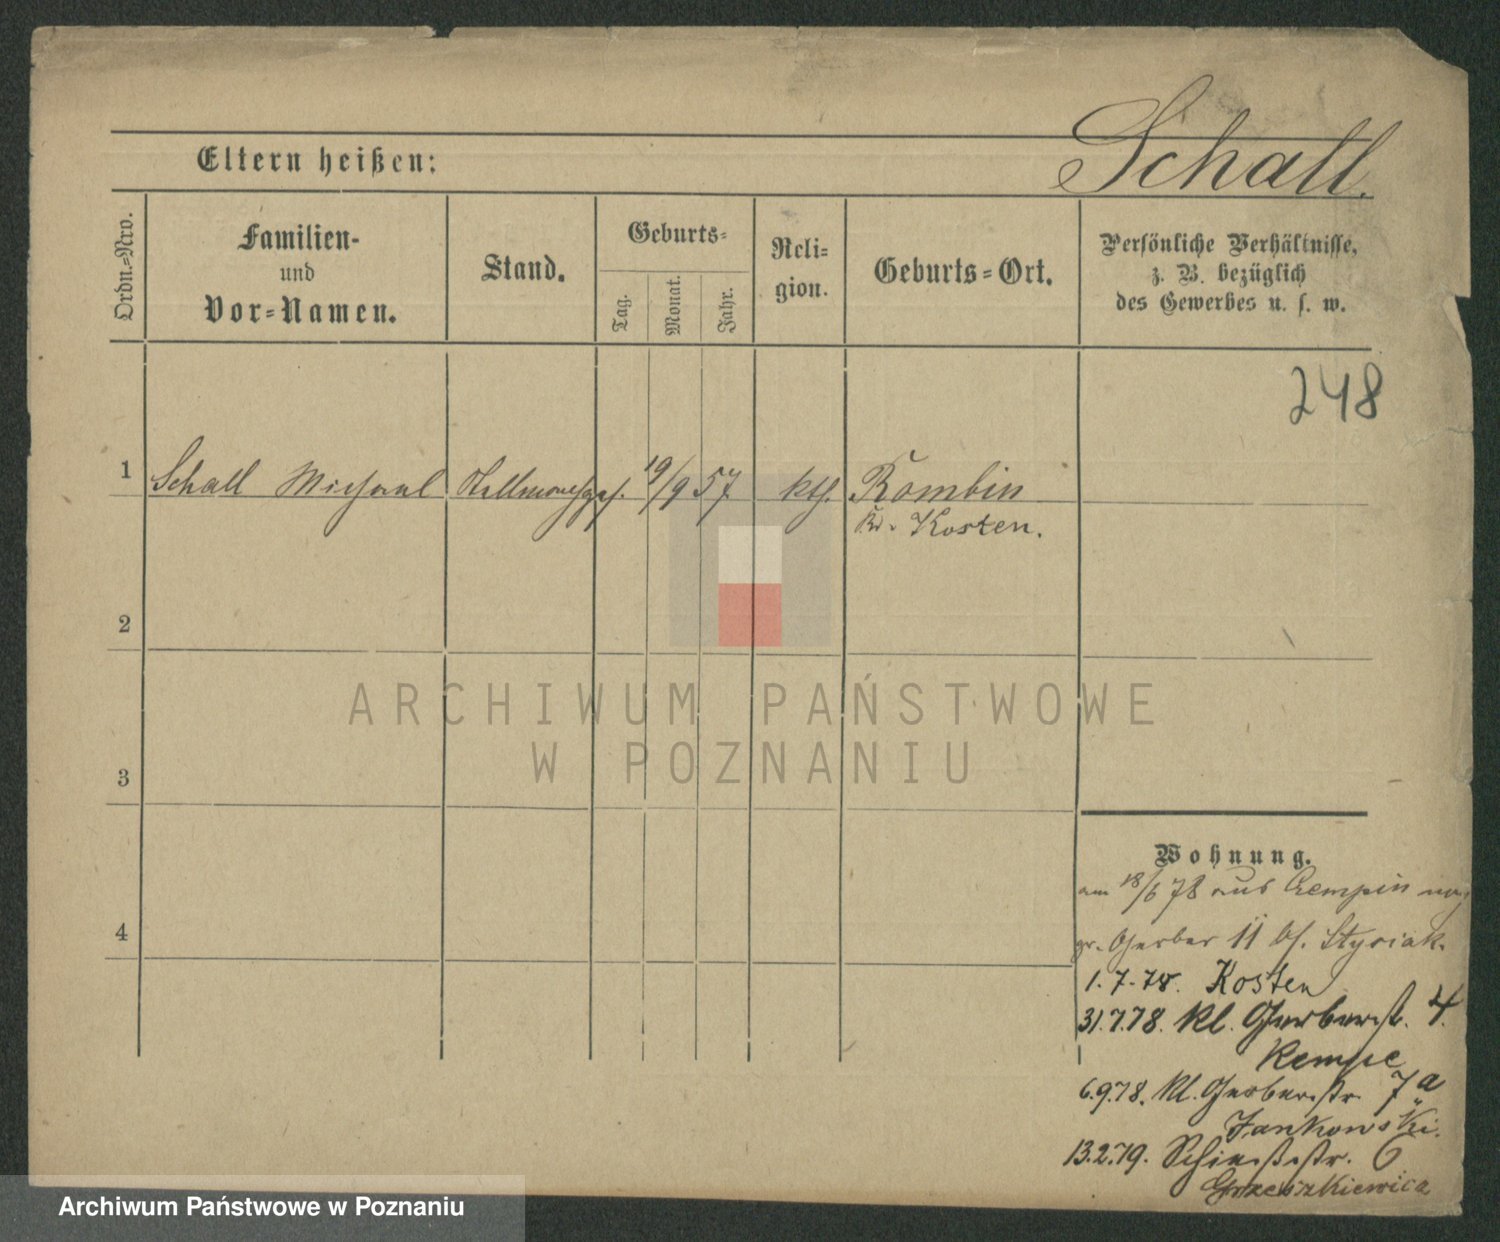 Schall.
Eltern heißen:
Ordn.-Nro.
Familien-
und
Vor-Namen.
Stand.
Geburts-
Tag.
Monat.
Jahr.
Reli-
gion.
Geburts-Ort.
Persönliche Verhältnisse,
z. B. bezüglich
des Gewerbes u. s. w.
248
1 Schall Michael 19/9 57 kth. Rombin
Kr. Kosten.
2
3
4
ARCHIWUM PAŃSTWOWE
W POZNANIU
Wohnung.
am 18/6 78 aus Czempin
gr. Gerber 11 bf. Stysiak.
1.7.78. Kosten
31.7.78. kl. Gerberstr. 4.
Kempe
6.9.78. kl. Gerberstr. 7a
Jankowski.
13.2.79. Schießstr. 6
Grzeszkiewicz
Archiwum Państwowe w Poznaniu